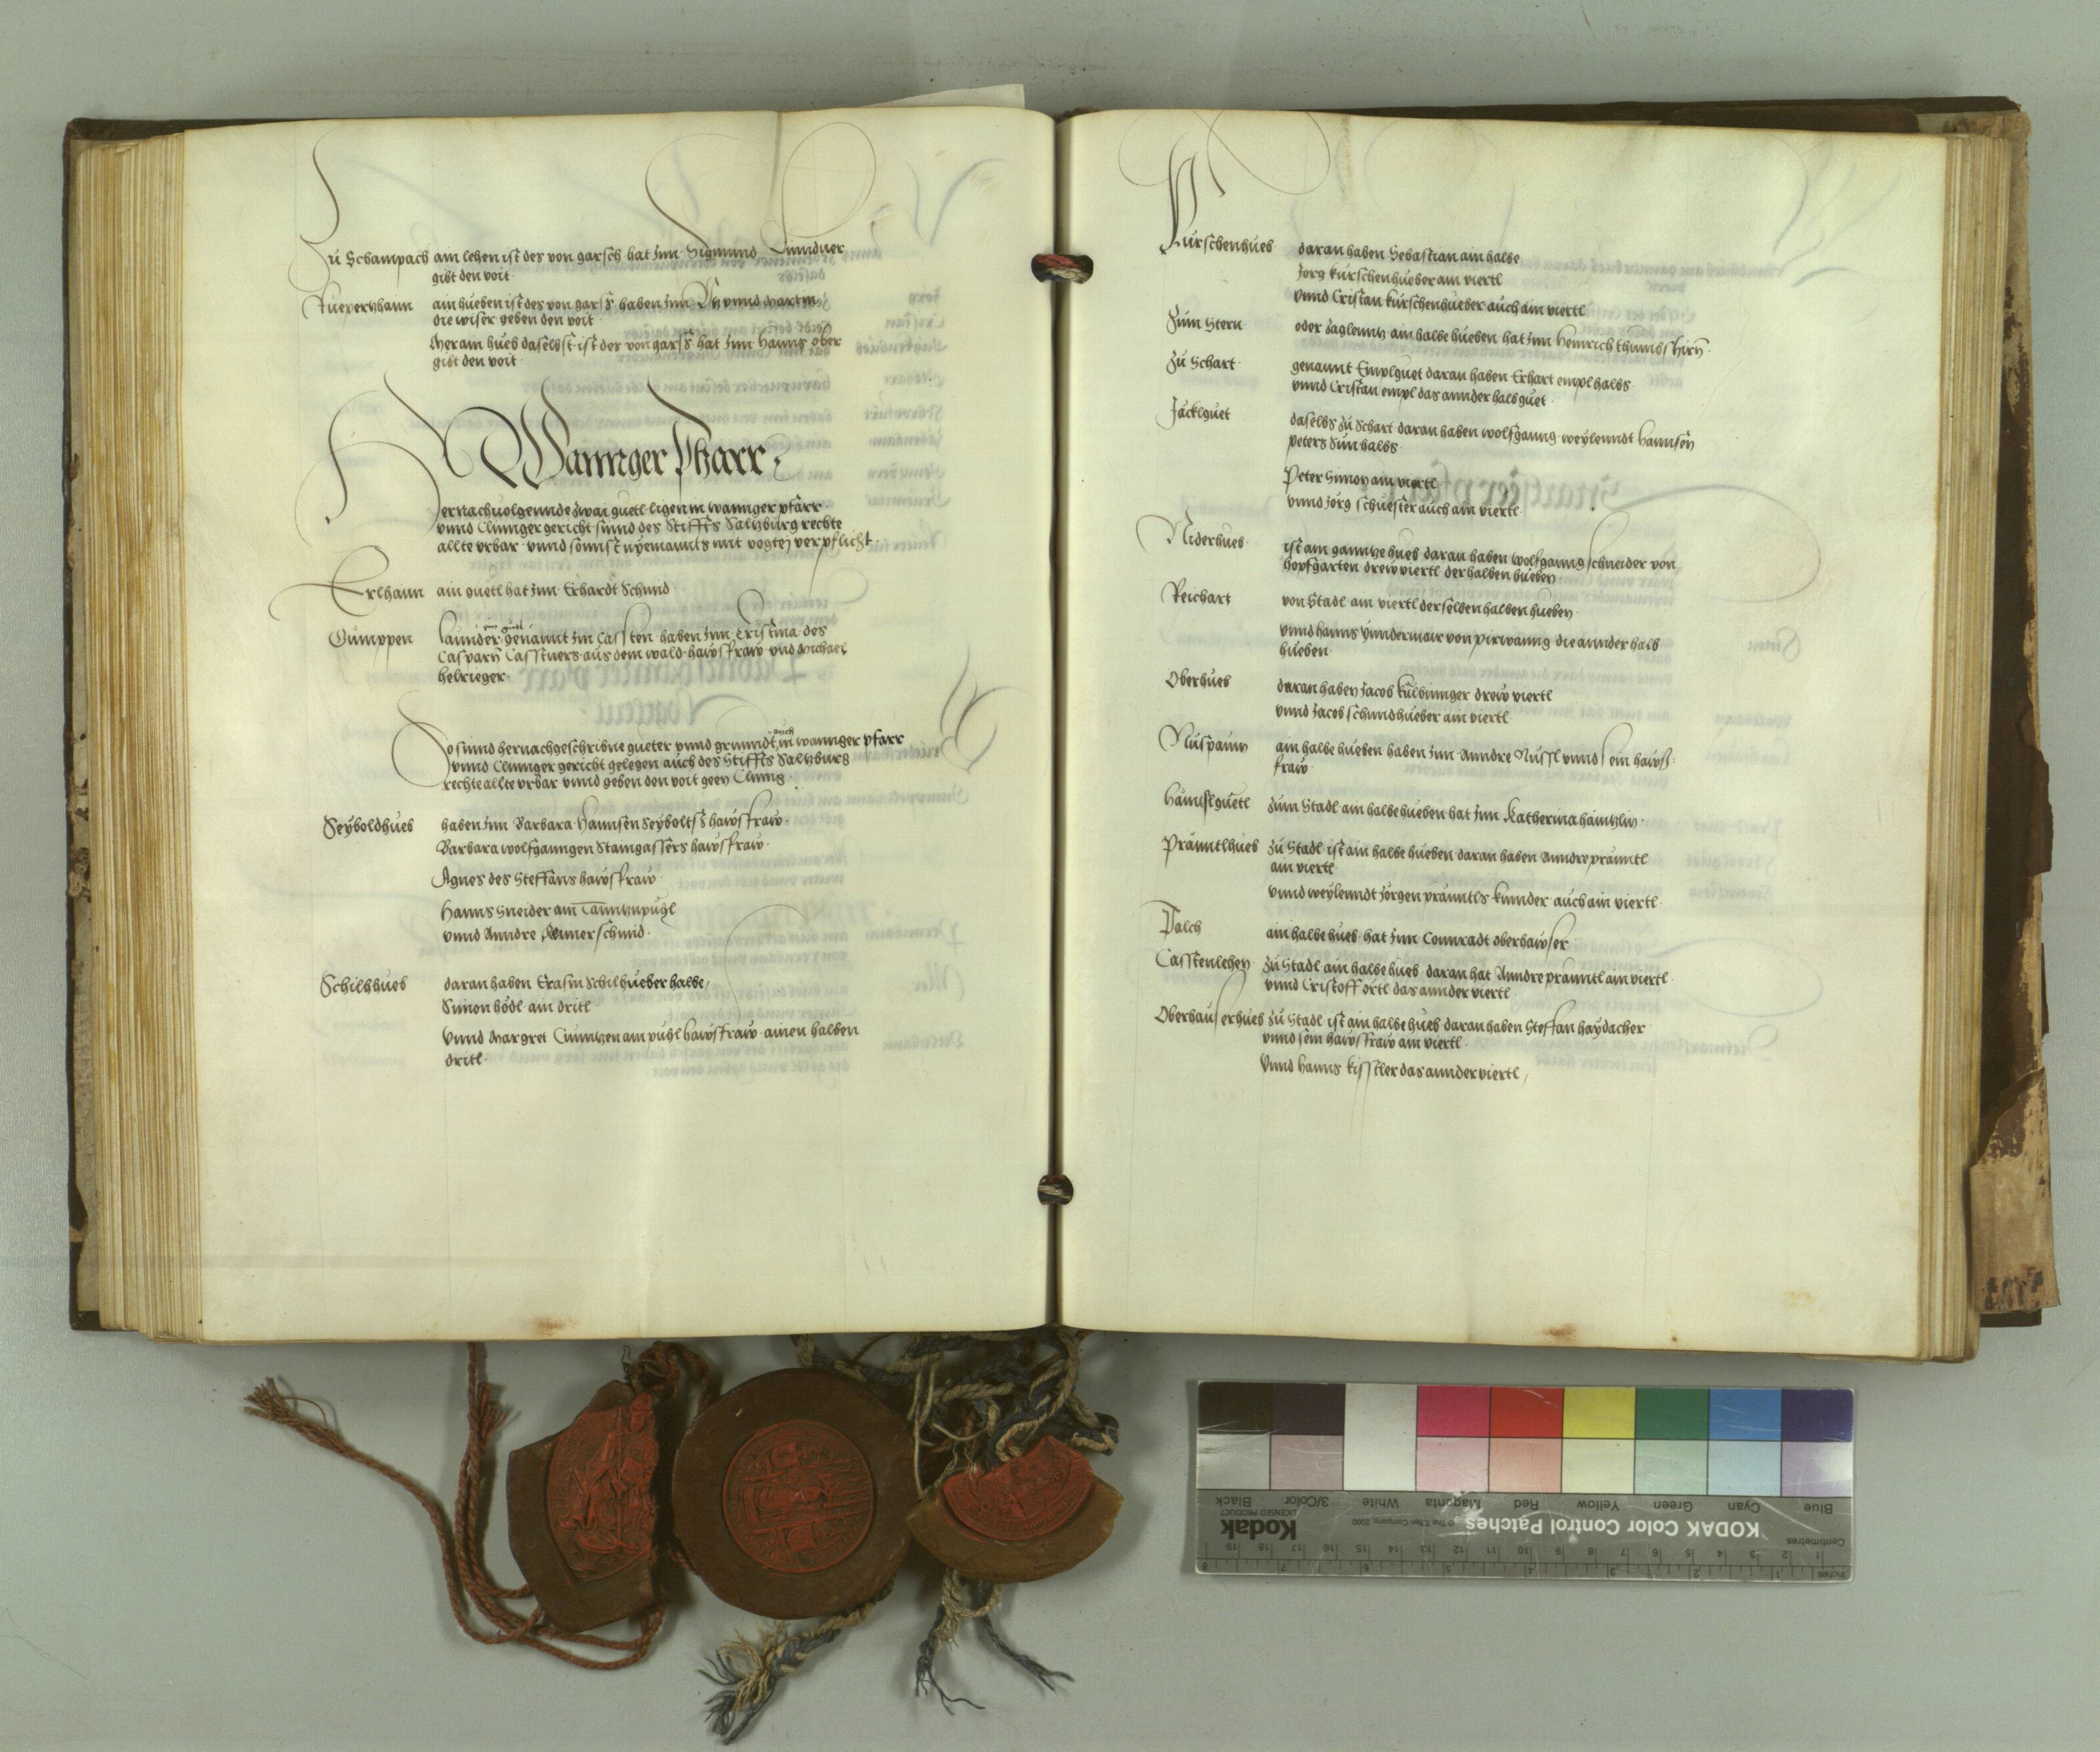 Zu Schampach ain lehen ist des von garsch hat Inn Sigmund Linndner
gibt den voit
Ruepertzhann ain hueben ist des von garss haben Inn vnnd Martin
die wiser geben den voit
Mer ain hueb daselbst ist der von garss hat Inn Hanns ober
gibt den voit
Wannger Pharr
Hernachuolgennde zwai guetl ligen in wannger pfarr
vnnd Clinnger gericht sinnd des Stiffts Saltzburg rechte
allte vrbar vnnd sonnst nyemannts mit vogtey verpflicht
Erlhann ain guetl hat Inn Erhardt Schmid
ein guetl
Gumppen lannder genannt Im Cassten haben Inn Cristina des
Casparn Casstners aus dem wald hawsfraw vnd Michael
helrieger
auch
So sinnd hernachgeschribne gueter vnnd grunndt in wannger pfarr
vnnd Clinnger gericht gelegen auch des Stiffts Saltzburg
rechte allte vrbar vnnd geben den voit geen Clinng
Seyboldhueb haben Inn Barbara Hannsen Seyboltss hawsfraw
Barbara wolfganngen Stamgassers hawsfraw
Agnes des Steffans hawsfraw
Hanns Sneider am puhl
vnnd Anndre schmid
Schilhhueb daran haben Erasm Schilhueber halbe
Simon hödl ain dritl
Vnnd Margret Cuntzen am puhl hawsfraw ainen halben
dritl
Kurschenhueb daran haben Sebastian ain halbe
Jorg kurschenhueber ain viertl
vnnd Cristan kurschenhueber auch ain viertl
Zum Stern oder Zaglenntz ain halbe hueben hat Inn Heinrich thumbshirn
Zu Schart genannt Emplguet daran haben Erhart empl halbs
vnnd Cristan empl das annder halb guet
Jäcklguet daselbs zu Schart daran haben wolfganng weylenndt Hannsen
peters Sun halbs
Peter Simon ain viertl
vnnd Jorg schuester auch ain viertl
Niderhueb ist ain ganntze hueb daran haben wolfganng schneider von
hopfgarten drew viertl der halben hueben
Reichart von Stadl ain viertl derselben halben hueben
vnnd hanns vnndermair von pirwanng die annder halb
hueben
Oberhueb daran haben Jacob kulbinnger drew viertl
vnnd Jacob schmidhueber ain viertl
Nuspaum ain halbe hueben haben Inn Anndre Nussl vnnd sein haws
fraw
Hämslguetl zum Stadl ain halbe hueben hat Inn Katherina haintzlin
Prämtlhueb zu Stadl ist ain halbe hueben daran haben Anndre prämtl
ain viertl
vnnd weylenndt Jorgen prämtls kinnder auch ain viertl
Palch ain halbe hueb hat Inn Connradt oberhawser
Casstenlehen zu Stadl ain halbe hueb daran hat Anndre prämtl ain viertl
vnnd Cristoff örtl das annder viertl
Oberhauserhueb zu Stadl ist ain halbe hueb daran haben Steffan haydacher
vnnd sein hawsfraw ain viertl
Vnnd Hanns kisstler das annder viertl
Blue Cyan Green Yellow Red Magenta White 3/Color Black
KODAK Color Control Patches
Kodak
LICENSED PRODUCT
Centimetres
1 2 3 4 5 6 7 8 9 10 11 12 13 14 15 16 17 18 19
Inches